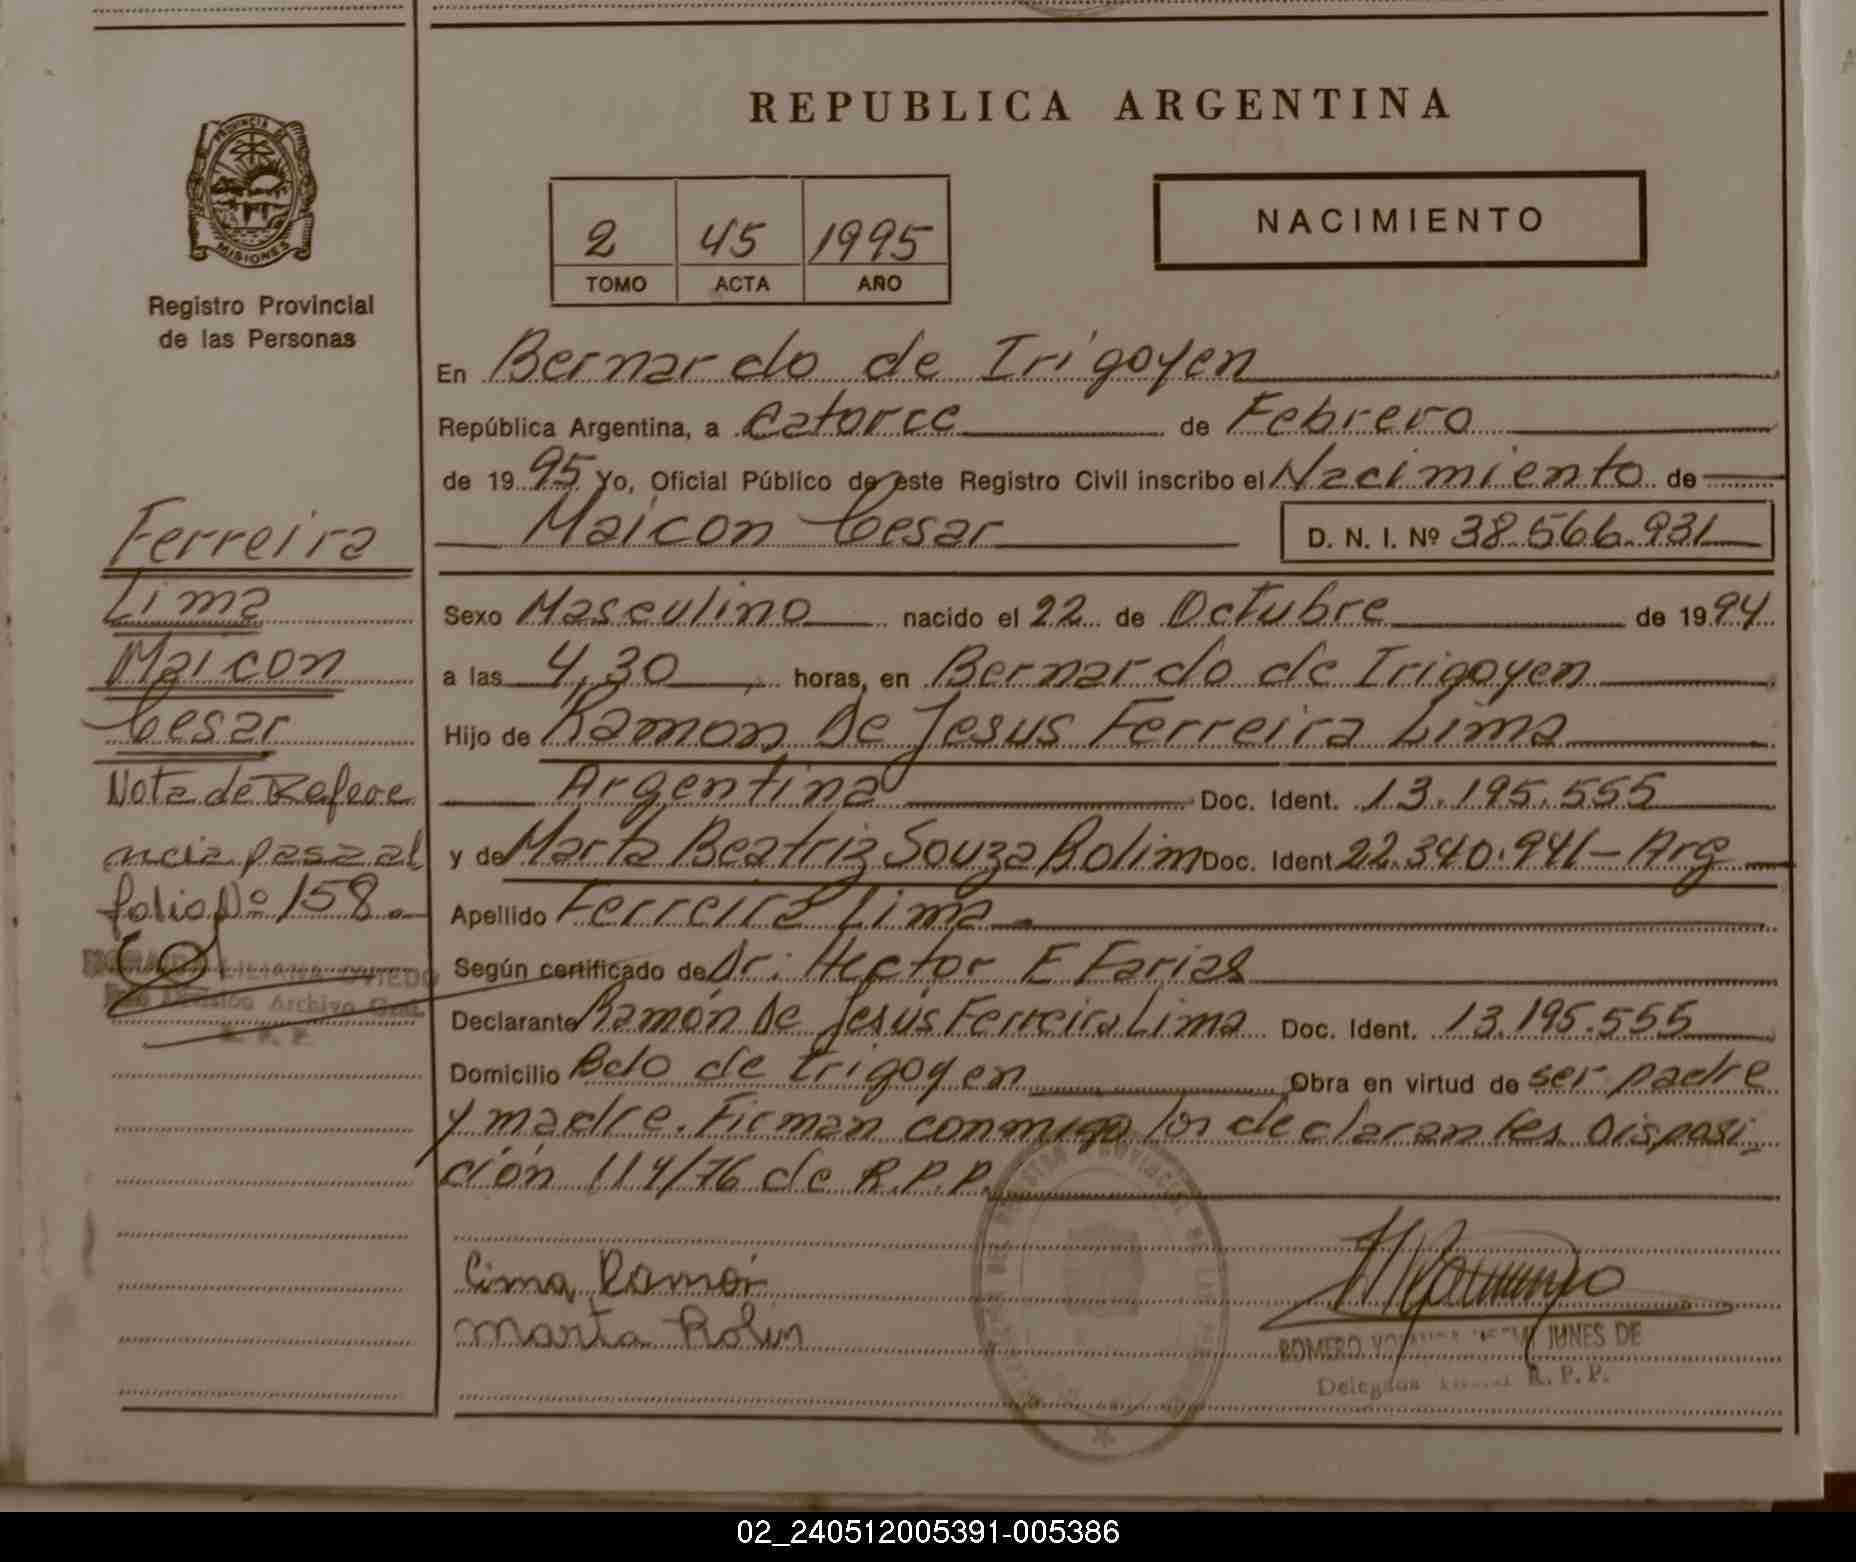 REPUBLICA ARGENTINA
PROVINCIA DE
MISIONES
Registro Provincial
de las Personas
2 45 1995
TOMO ACTA AÑO
NACIMIENTO
En Bernardo de Irigoyen
República Argentina, a Catorce de Febrero
de 1995 Yo, Oficial Público de este Registro Civil inscribo el Nacimiento de
Maicon Cesar D. N. I. Nº 38.566.931
Sexo Masculino nacido el 22 de Octubre de 1994
a las 4,30 horas, en Bernardo de Irigoyen
Hijo de Ramón De Jesús Ferreira Lima
Argentina Doc. Ident. 13.195.555
y de Marta Beatriz Souza Rolim Doc. Ident. 22.340.941 - Arg
Apellido Ferreira Lima
Según certificado de Dr: Hector E Farias
Declarante Ramón De Jesús Ferreira Lima Doc. Ident. 13.195.555
Domicilio Bdo de Irigoyen Obra en virtud de ser padre
y madre. Firman conmigo los declarantes Disposi-
ción 114/76 de R.P.P.
Lima Ramón
Marta Rolin
ROMERO JUNES DE
R. P. P.
Ferreira
Lima
Maicon
Cesar
Nota de Refere
ncia pasa al
folio Nº 158.
LILIANA OVIEDO
División Archivo Gral.
R. P. P.
02_240512005391-005386